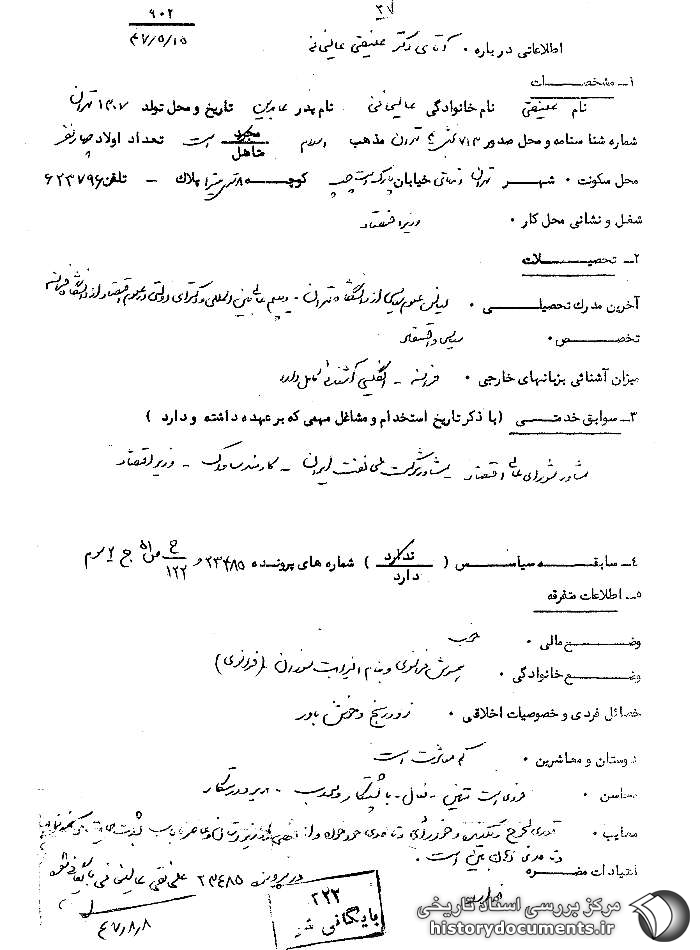 ۳۷
۹۰۲
۴۷/۵/۱۵
اطلاعاتی درباره ۰ آقای دکتر علینقی عالیخانی
۱ــ مشخصــــات
نام علینقی نام خانوادگی عالیخانی نام پدر عابدین تاریخ و محل تولد ۱۳۰۷ تهران
شماره شناسنامه و محل صدور ۷۱۳ تهران مذهب اسلام مجرد متاهل است تعداد اولاد چهار نفر
محل سکونت ۰ شهــر تهران خیابان کوچــه پلاک ــ تلفن ۶۲۳۷۹۶
شغل و نشانی محل کار ۰ وزیر اقتصاد
۲ــ تحصیــــلات
آخرین مدرک تحصیلــی ۰ لیسانس علوم سیاسی از دانشگاه تهران ـ دیپلم عالی بین المللی و دکترای دولتی در علوم اقتصاد از دانشگاه فرانسه
تخصــص ۰ سیاسی و اقتصادی
میزان آشنائی بزبانهای خارجی ۰ فرانسه ـ انگلیسی آشنائی کامل دارد
۳ــ سوابق خدمتــی (با ذکر تاریخ استخدام و مشاغل مهمی که بر عهده داشته و دارد )
مشاور شورای عالی اقتصاد مشاور شرکت ملی نفت ایران ـ کارمند ساواک ـ وزیر اقتصاد
۴ــ سابقــه سیاســی ( ندارد دارد ) شماره های پرونده ۲۳۴۸۵ و ح ۱۲۲ ص ۵۱ ج ۲ سوم
۵ــ اطلاعات متفرقه
وضــع مالی ۰ خوب
وضــع خانوادگی ۰ همسرش فرانسوی و بنام (فرانسوی)
خصائل فردی و خصوصیات اخلاقی ۰ زودرنج و خوش باور
دوستان و معاشرین ۰ کم معاشرت است
محاسن ۰ فردی است متین ـ فعال ـ با پشتکار و مودب ـ مدیر و درستکار
معایب ۰ قدری لجوج و خودرأی و تا حدی خودخواه
و تا حدی است ۰
انتقادات مضــره ندارد
در پرونده ۲۳۴۸۵ علی نقی عالیخانی بایگانی شود
۴۷/۸/۸
۲۲۲
بایگانی شد
مرکز بررسی اسناد تاریخی
historydocuments.ir